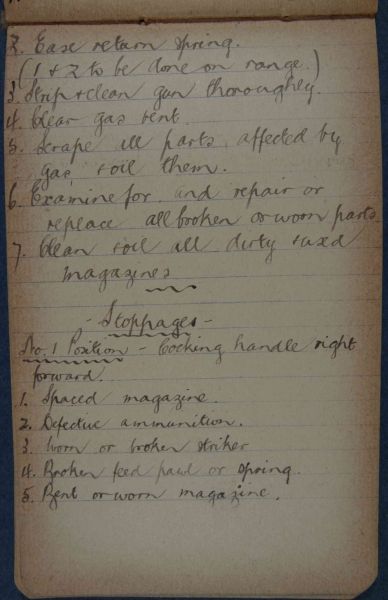 2. Ease return spring.
(1 + 2 to be done on range.)
3. Strip + clean gun thoroughly.
4. Clear gas vent.
5. Scrape all parts affected by
gas, + oil them.
6. Examine for and repair or
replace all broken or worn parts
7. Clean + oil all dirty + used
magazines
- Stoppages -
No. 1 Position - Cocking handle right
forward.
1. Spaced magazine.
2. Defective ammunition.
3. Worn or broken striker
4. Broken feed pawl or spring.
5. Bent or worn magazine.